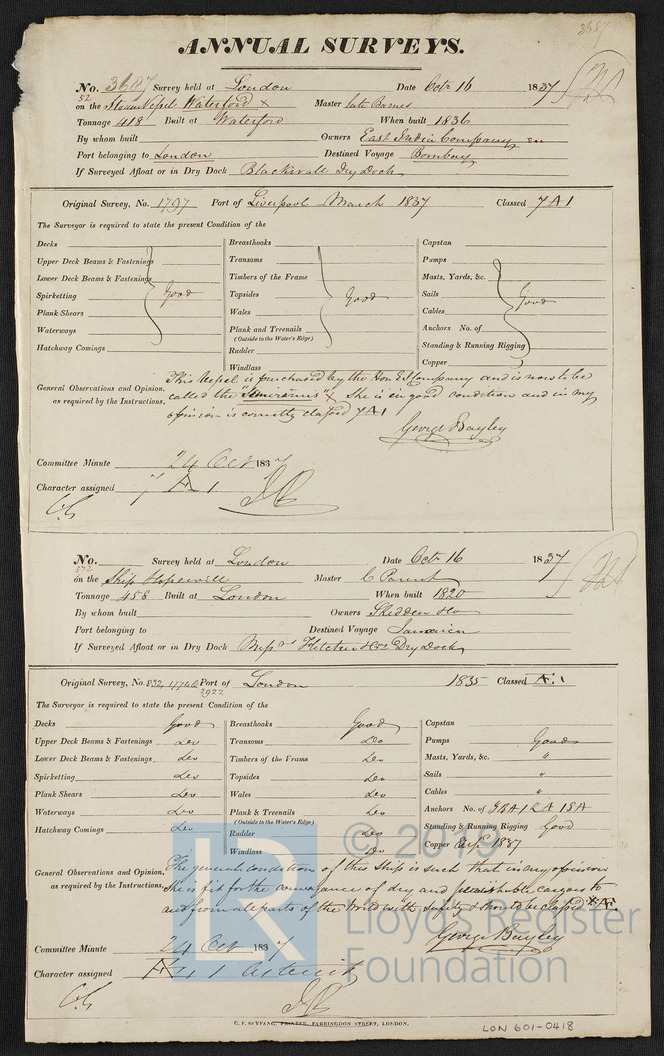 3687
ANNUAL SURVEYS.
No. 3687 Survey held at London Date Octr 16 1837
52
on the Steam Vessel Waterford x Master late Barnes
Tonnage 418 Built at Waterford When built 1836
By whom built Owners East India Company
Port belonging to London Destined Voyage Bombay
If Surveyed Afloat or in Dry Dock Blackwall Dry Dock
Original Survey, No. 1797 Port of Liverpool March 1837 Classed 7 A 1
The Surveyor is required to state the present Condition of the
Decks Breasthooks Capstan
Upper Deck Beams & Fastenings Transoms Pumps
Lower Deck Beams & Fastenings Timbers of the Frame Masts, Yards, &c.
Spirketting Good Topsides Good Sails Good
Plank Shears Wales Cables
Waterways Plank and Treenails Anchors No. of
(Outside to the Water's Edge)
Hatchway Comings Rudder Standing & Running Rigging
Windlass Copper
General Observations and Opinion, as required by the Instructions.
This Vessel is purchased by the Hon E I Company and is now to be
called the "Semiramis" x She is in good condition and in my
opinion is correctly classed 7 A 1
George Bayley
Committee Minute 24 Oct 1837
Character assigned 7 A 1
No. Survey held at London Date Octr 16 1837
572
on the Ship Hopewill Master C Parent
Tonnage 458 Built at London When built 1820
By whom built Owners Skidden & Co
Port belonging to Destined Voyage Jamaica
If Surveyed Afloat or in Dry Dock Messrs Fletcher & Cos Dry Dock
Original Survey, No. 832, 17746 Port of London 1835 Classed A. 1
2922
The Surveyor is required to state the present Condition of the
Decks Good Breasthooks Good Capstan
Upper Deck Beams & Fastenings Do Transoms Do Pumps Good
Lower Deck Beams & Fastenings Do Timbers of the Frame Do Masts, Yards, &c. "
Spirketting Do Topsides Do Sails "
Plank Shears Do Wales Do Cables "
Waterways Do Plank & Treenails Do Anchors No. of
(Outside to the Water's Edge)
Hatchway Comings Do Rudder Do Standing & Running Rigging Good
Windlass Do Copper 1837
General Observations and Opinion, as required by the Instructions.
The general condition of this Ship is such that in my opinion
She is fit for the conveyance of dry and perishable cargoes to
and from all parts of the World with safety & should be classed * A. 1
George Bayley
Committee Minute 24 Oct 1837
Character assigned A 1 asterisk
C. F. SEYFANG, PRINTER, FARRINGDON STREET, LONDON.
LON 601-0418
LR © 2019
Lloyd's Register
Foundation